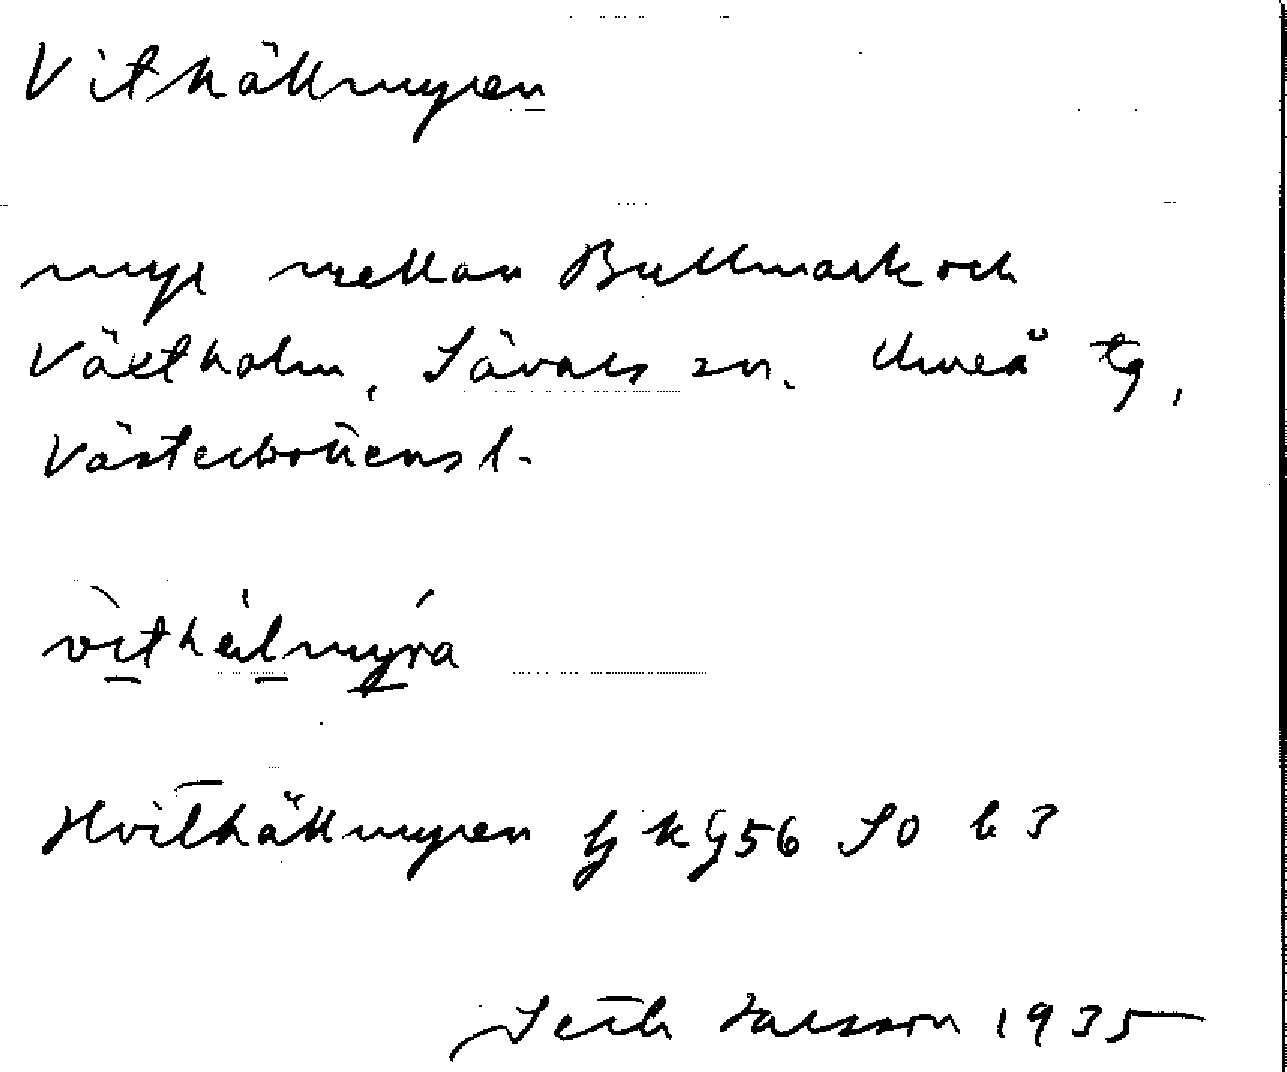 Vithällmyren
myr mellan Bullmark och
Västholm, Sävars sn. Umeå tg,
Västerbottens l.
vìthäl̀mýra
Hvithällmyren
56 SO b 3
Seth Larsson 1935